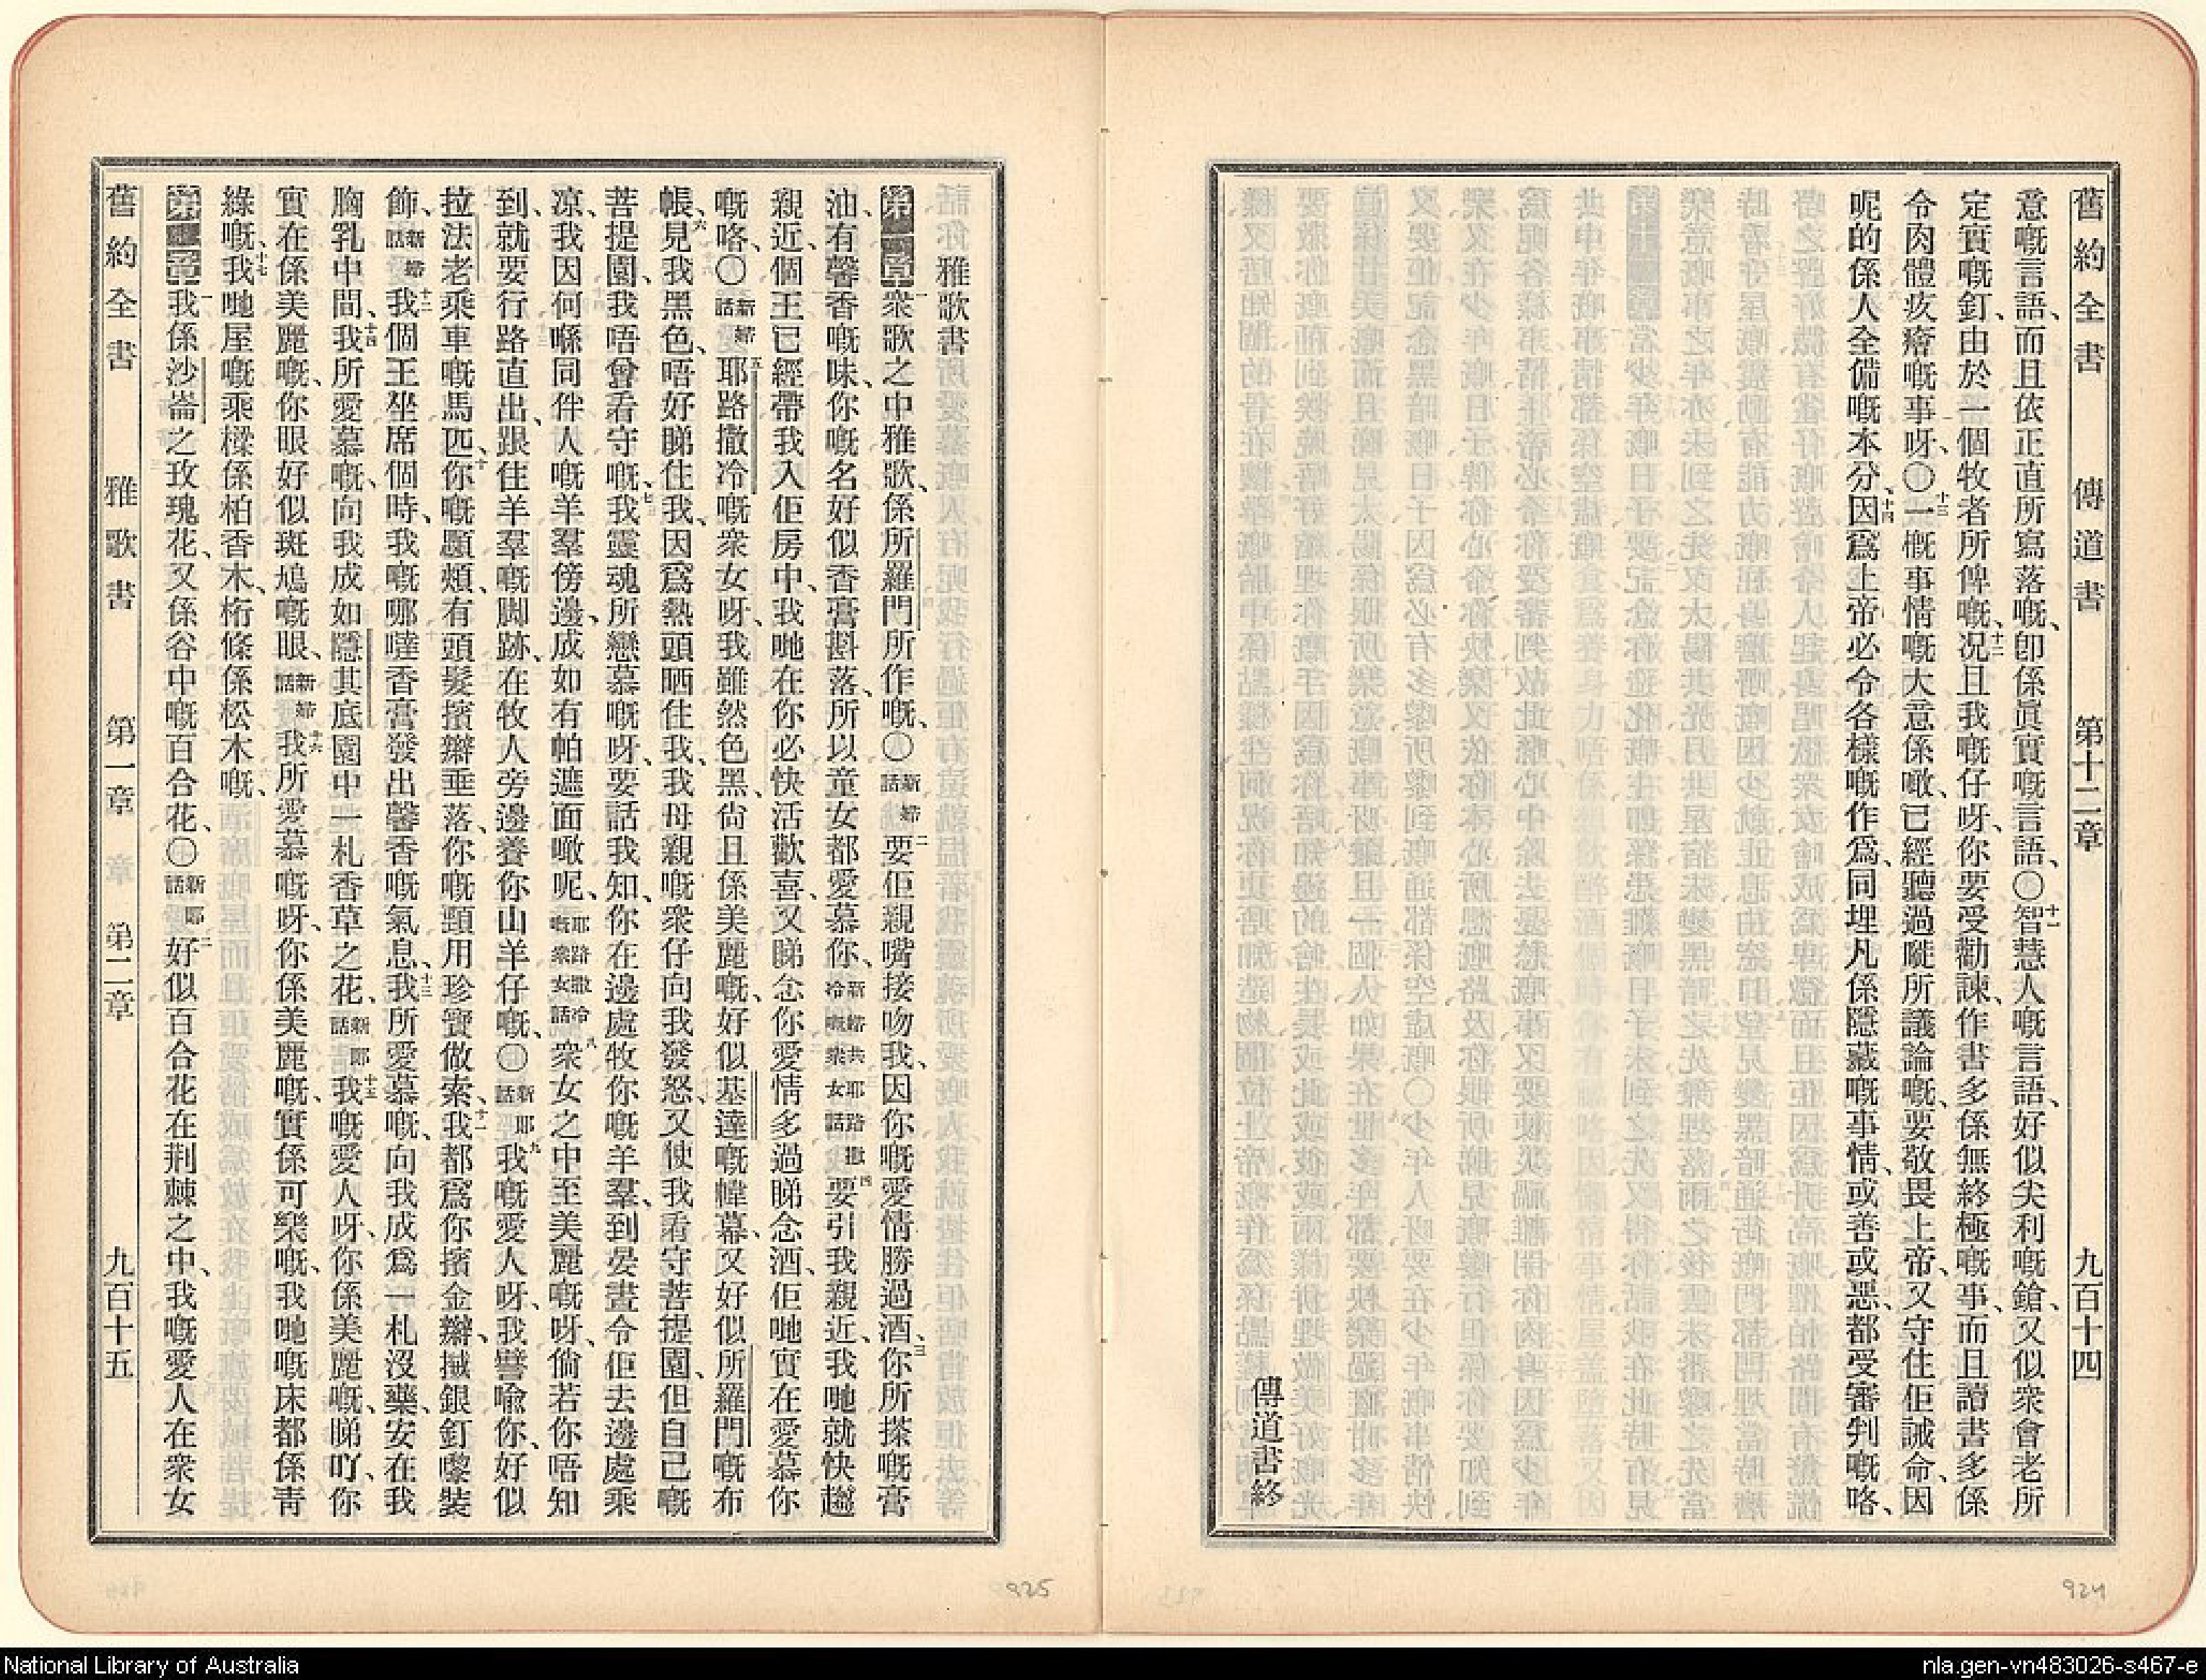 舊約全書 傳道書 第十二章 九百十四
意嘅言語、而且依正直所寫落嘅、卽係眞實嘅言語、〇十一智慧人嘅言語、好似尖利嘅鎗、又似衆會老所
定實嘅釘、由於一個牧者所俾嘅、十二况且我嘅仔呀、你要受勸諫、作書多係無終極嘅事、而且讀書多係
令肉體疚瘠嘅事呀、〇十三一概事情嘅大意係噉、已經聽過嚟所議論嘅、要敬畏上帝、又守住佢誡命、因
呢的係人全備嘅本分、十四因爲上帝必令各樣嘅作爲、同埋凡係隱藏嘅事情、或善或惡、都受審判嘅咯、
傳道書終
924
雅歌書
第一章 一衆歌之中雅歌、係所羅門所作嘅、〇新婦話二要佢親嘴接吻我、因你嘅愛情勝過酒、三你所搽嘅膏
油、有馨香嘅味、你嘅名好似香膏斟落、所以童女都愛慕你、新婦共耶路撒冷嘅衆女話四要引我親近、我哋就快趲
親近、個王已經帶我入佢房中、我哋在你必快活歡喜、又睇念你愛情多過睇念酒、佢哋實在愛慕你
嘅咯、〇新婦話五耶路撒冷嘅衆女呀、我雖然色黑、尙且係美麗嘅、好似基達嘅幃幕、又好似所羅門嘅布
帳、六見我黑色、唔好睇住我、因爲熱頭晒住我、我母親嘅衆仔向我發怒、又使我看守菩提園、但自己嘅
菩提園、我唔曾看守嘅、七我靈魂所戀慕嘅呀、要話我知、你在邊處牧你嘅羊羣、到晏晝令佢去邊處乘
凉、我因何喺同伴人嘅羊羣傍邊、成如有帕遮面噉呢、耶路撒冷嘅衆女話八衆女之中至美麗嘅呀、倘若你唔知
到、就要行路直出、跟住羊羣嘅脚跡、在牧人旁邊養你山羊仔嘅、〇新郎話九我嘅愛人呀、我譬喩你、好似
拉法老乘車嘅馬匹、十你嘅顋頰、有頭髮擯辮垂落、你嘅頸用珍寶做索、十一我都爲你擯金辮、搣銀釘嚟裝
飾、新婦話十二我個王坐席個時、我嘅哪噠香膏發出馨香嘅氣息、十三我所愛慕嘅、向我成爲一札沒藥、安在我
胸乳中間、十四我所愛慕嘅、向我成如隱其底園中一札香草之花、新郎話十五我嘅愛人呀、你係美麗嘅、睇吖、你
實在係美麗嘅、你眼好似斑鳩嘅眼、新婦話十六我所愛慕嘅呀、你係美麗嘅、實係可樂嘅、我哋嘅床都係靑
綠嘅、十七我哋屋嘅乘樑係柏香木、桁條係松木嘅、
第二章 一我係沙崙之玫瑰花、又係谷中嘅百合花、〇新郎話二好似百合花在荆棘之中、我嘅愛人在衆女
舊約全書 雅歌書 第一章 第二章 九百十五
925
National Library of Australia
nla.gen-vn483026-s467-e